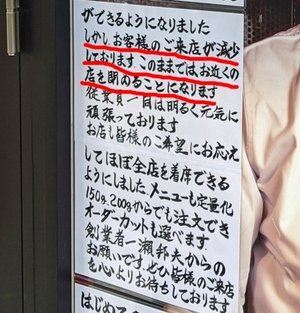 ができるようになりました
しかしお客様のご来店が減少
しております このままではお近くの
店を閉めることになります
従業員一同は明るく元気に
頑張っております
お店も皆様のご希望にお応え
してほぼ全店を着席できる
ようにしました メニューも定量化
150g、200gからでも注文でき
オーダーカットも選べます
創業者一瀬邦夫からの
お願いです。ぜひ皆様のご来店
を心よりお待ちしております
はじめて